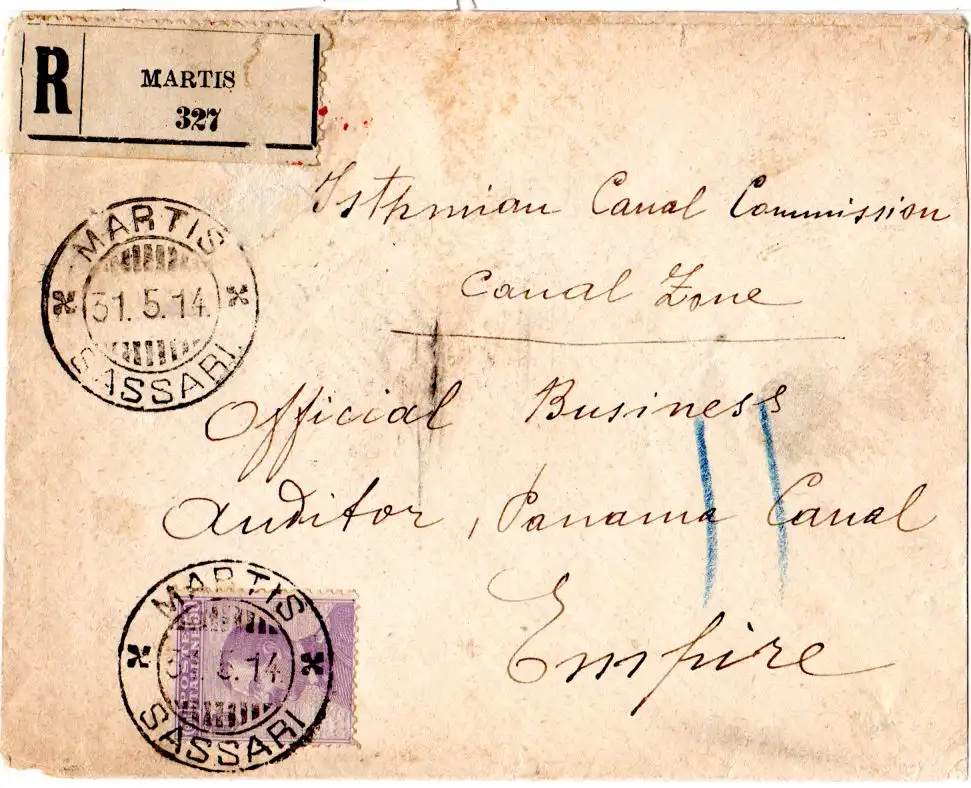 R
MARTIS
327
Isthmian Canal Commission
Canal Zone
MARTIS
31.5.14.
SASSARI
Official Business
Auditor, Panama Canal
Empire
MARTIS
5.14.
SASSARI
POSTE
ITALIANE